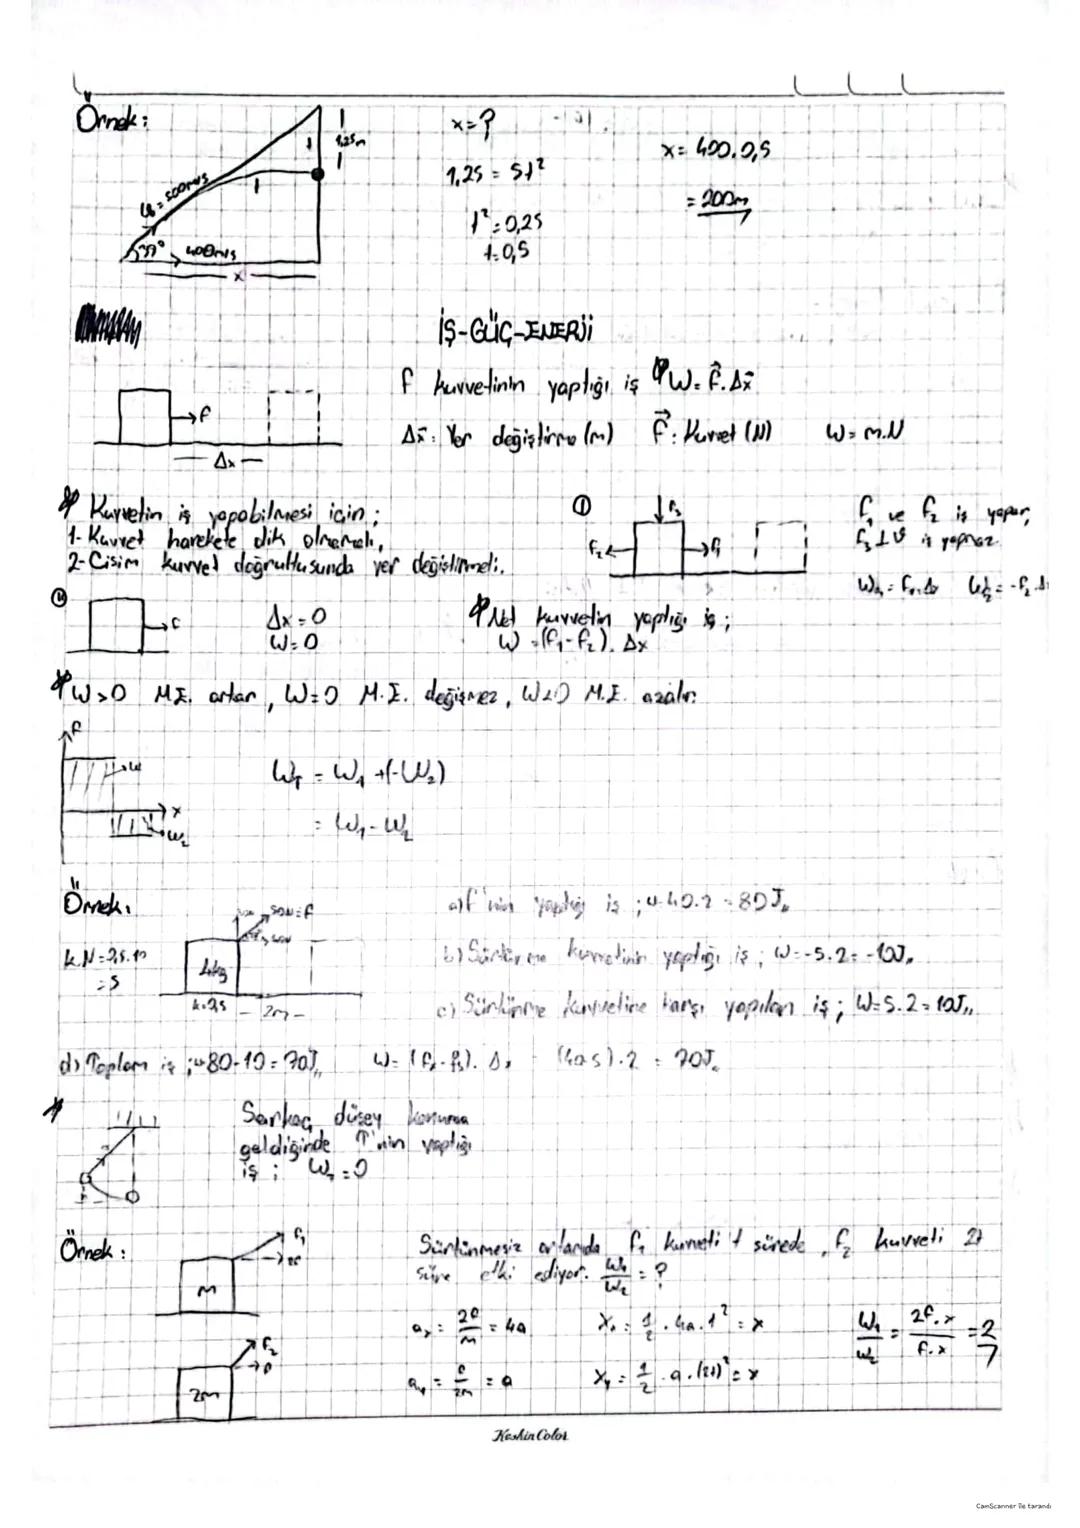 Örnek:
1,25m
V₀ = 500m/s
37° 400m/s
x
x=?
1,25 = 5t²
t²=0,25
t=0,5
x= 400.0,5
= 200m
İŞ-GÜÇ-ENERJİ
F kuvvetinin yaptığı iş W= F.Δx
F
Δx
Δx: Yer değiştirme (m) F: Kuvvet (N) W= m.N
Kuvvetin iş yapabilmesi için;
1- Kuvvet harekete dik olmamalı,
2- Cisim kuvvet doğrultusunda yer değiştirmeli.
① F₃
F₂ F₁
F₁ ve F₂ iş yapar,
F₃⊥V iş yapmaz.
W₁ = F₁.Δx W₂ = -F₂.Δx
② F
Δx=0
W=0
Net kuvvetin yaptığı iş;
W =(F₁-F₂). Δx
W>0 M.E. artar, W=0 M.E. değişmez, W<0 M.E. azalır.
F
W
x
W₂
W_T = W₁ +(-W₂)
= W₁-W₂
Örnek:
50N=F
k.N=0,5.10
=5
4kg
k=0,5
2m
a) F'nin yaptığı iş ; W=40.2 = 80J
b) Sürtünme kuvvetinin yaptığı iş ; W=-5.2= -10J
c) Sürtünme kuvvetine karşı yapılan iş ; W=5.2=10J
d) Toplam iş ; W=80-10=70J W= (Fₓ-fₛ). Δx (40-5).2 = 70J
Sarkaç düşey konuma
geldiğinde T'nin yaptığı
iş ; W_T=0
Örnek:
F₁
2F
m
F₂
F
2m
Sürtünmesiz ortamda F₁ kuvveti t sürede, F₂ kuvveti 2t
süre etki ediyor. W₁/W₂ = ?
aₓ = 2F/m = 4a
Xₓ = 1/2 . 4a.t² = x
W₁/W₂ = 2F.x/F.x = 2
a_y = F/2m = a
X_y = 1/2 .a.(2t)² = x
Keskin Color
CamScanner ile tarandı